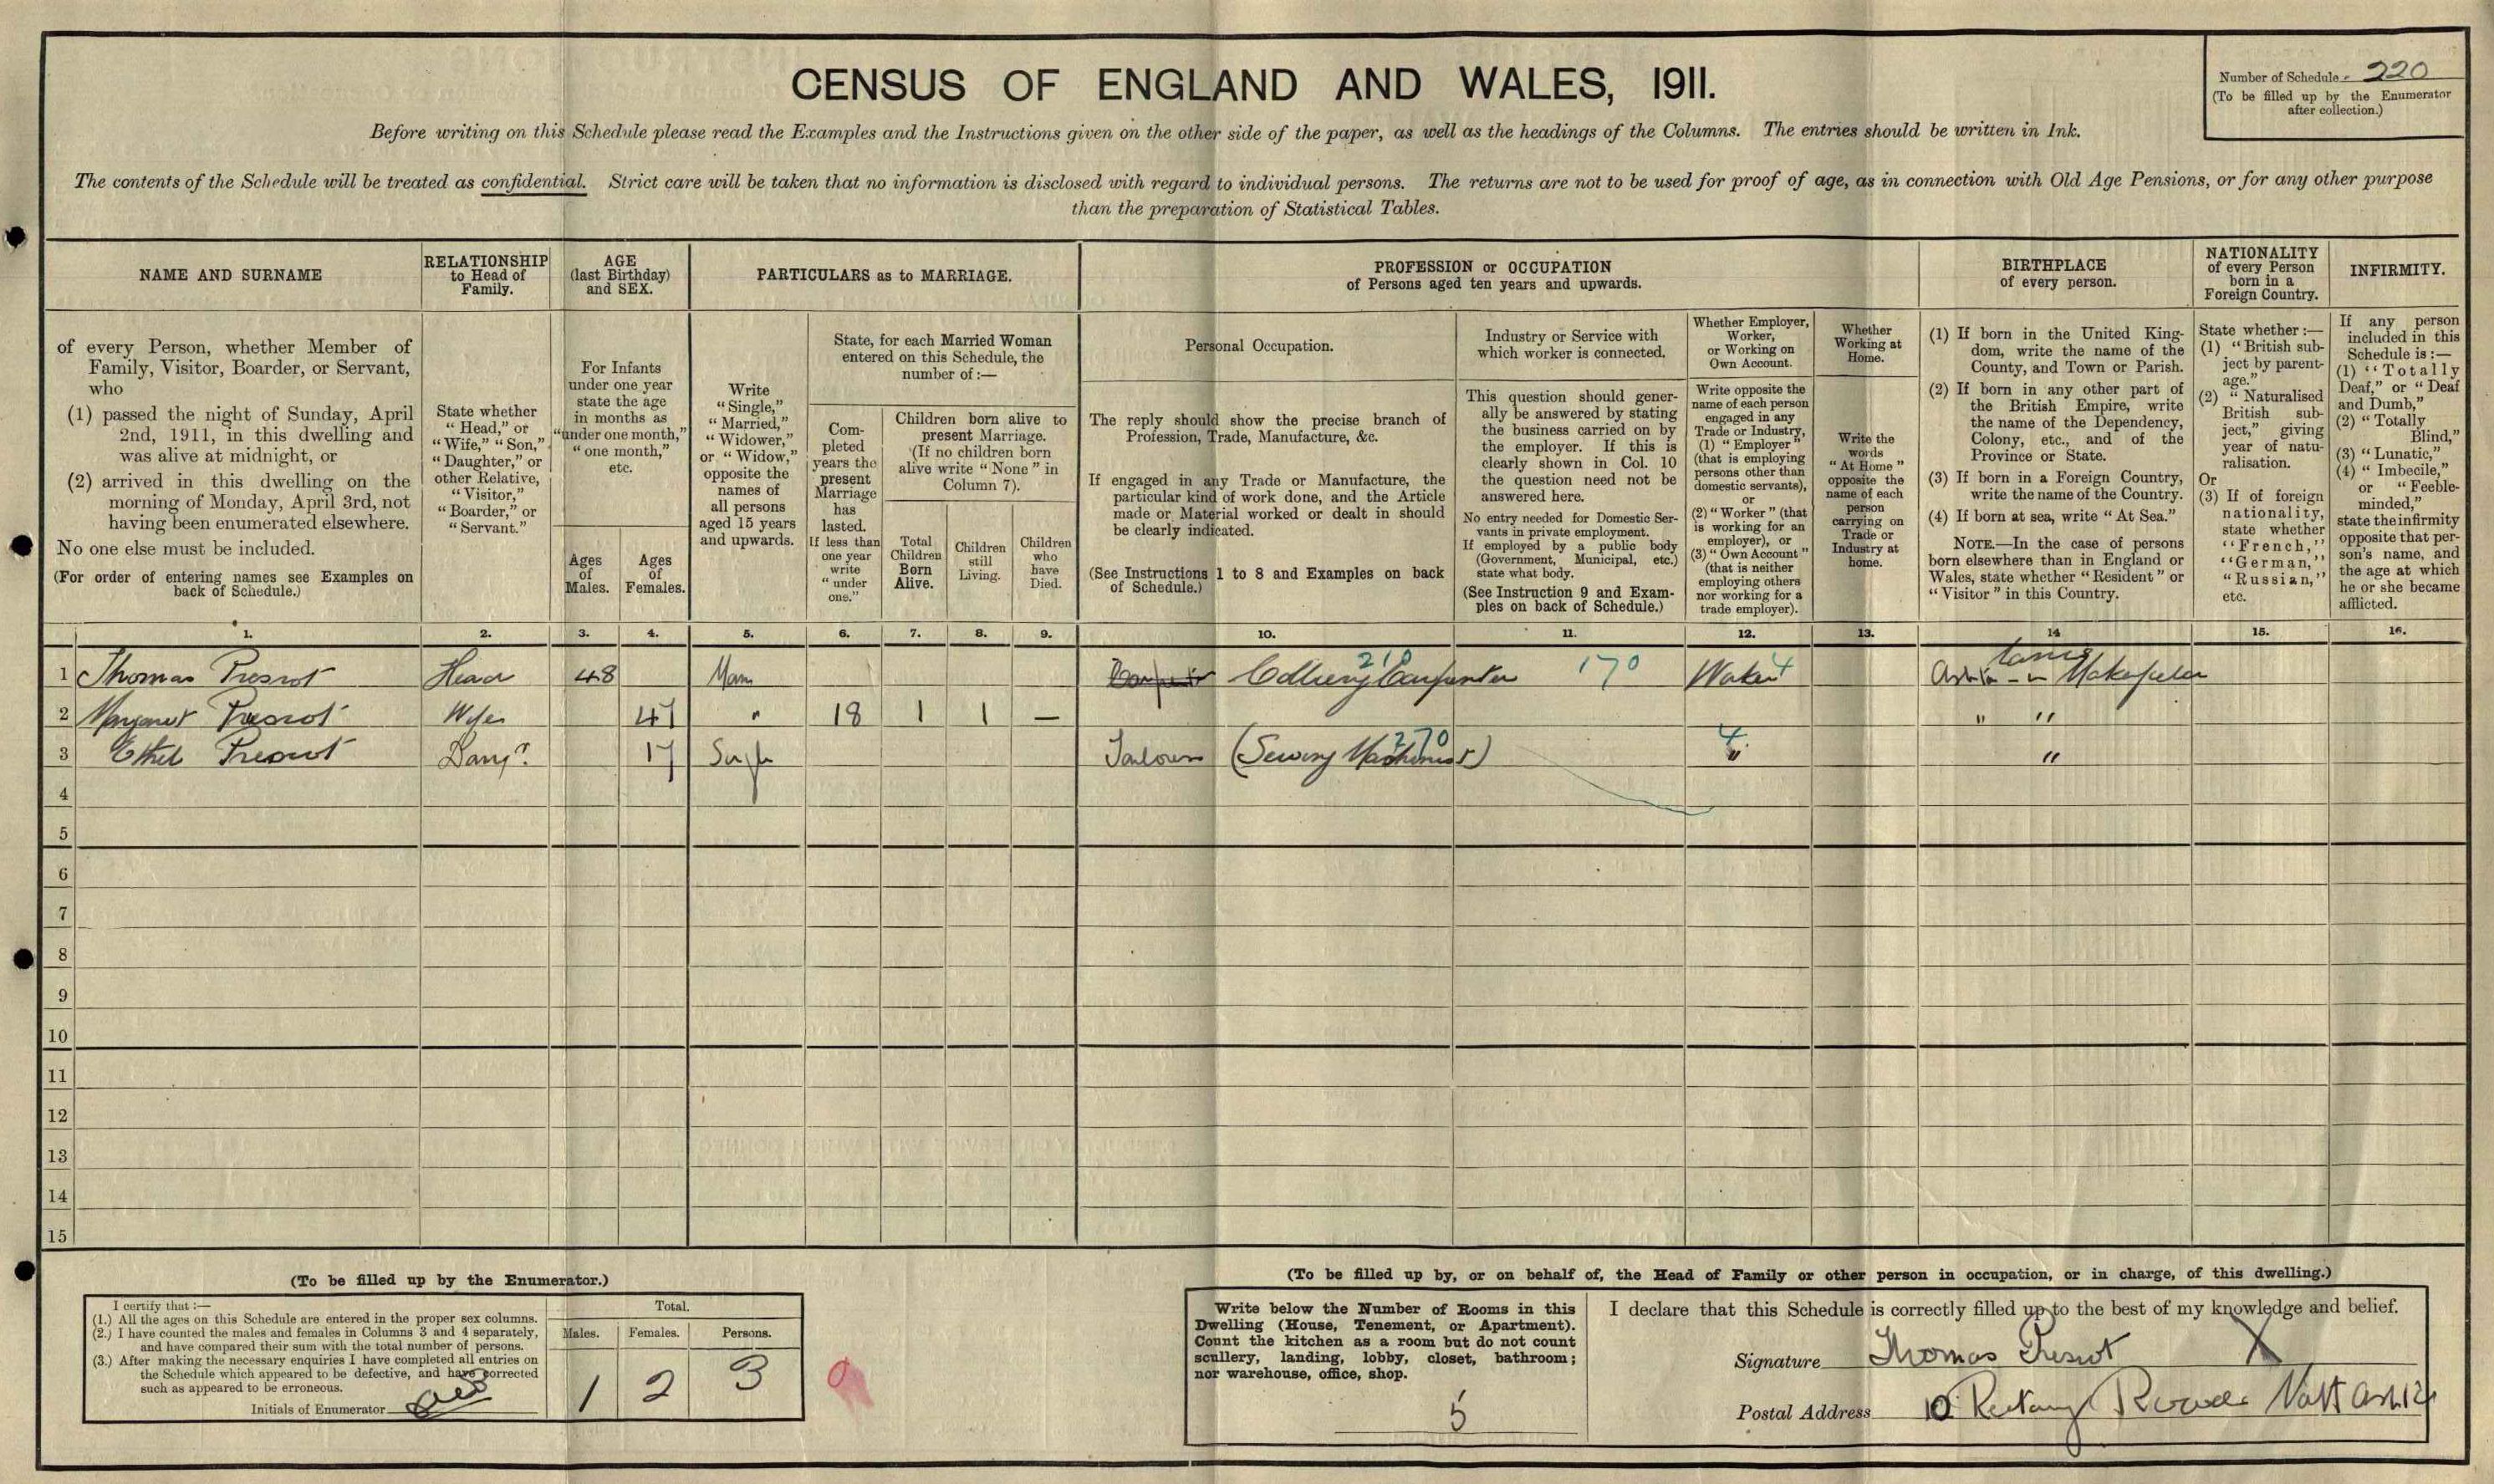 CENSUS OF ENGLAND AND WALES, 1911.
Number of Schedule 220
(To be filled up by the Enumerator
after collection.)
Before writing on this Schedule please read the Examples and the Instructions given on the other side of the paper, as well as the headings of the Columns. The entries should be written in Ink.
The contents of the Schedule will be treated as confidential. Strict care will be taken that no information is disclosed with regard to individual persons. The returns are not to be used for proof of age, as in connection with Old Age Pensions, or for any other purpose
than the preparation of Statistical Tables.
NAME AND SURNAME
of every Person, whether Member of
Family, Visitor, Boarder, or Servant,
who
(1) passed the night of Sunday, April
2nd, 1911, in this dwelling and
was alive at midnight, or
(2) arrived in this dwelling on the
morning of Monday, April 3rd, not
having been enumerated elsewhere.
No one else must be included.
(For order of entering names see Examples on
back of Schedule.)
RELATIONSHIP
to Head of
Family.
State whether
"Head," or
"Wife," "Son,"
"Daughter," or
other Relative,
"Visitor,"
"Boarder," or
"Servant."
AGE
(last Birthday)
and SEX.
For Infants
under one year
state the age
in months as
"under one month,"
"one month,"
etc.
Ages
of
Males.
Ages
of
Females.
PARTICULARS as to MARRIAGE.
Write
"Single,"
"Married,"
"Widower,"
or "Widow,"
opposite the
names of
all persons
aged 15 years
and upwards.
State, for each Married Woman
entered on this Schedule, the
number of :—
Com-
pleted
years the
present
Marriage
has
lasted.
If less than
one year
write
"under
one."
Children born alive to
present Marriage.
(If no children born
alive write "None" in
Column 7).
Total
Children
Born
Alive.
Children
still
Living.
Children
who
have
Died.
PROFESSION or OCCUPATION
of Persons aged ten years and upwards.
Personal Occupation.
The reply should show the precise branch of
Profession, Trade, Manufacture, &c.
If engaged in any Trade or Manufacture, the
particular kind of work done, and the Article
made or Material worked or dealt in should
be clearly indicated.
(See Instructions 1 to 8 and Examples on back
of Schedule.)
Industry or Service with
which worker is connected.
This question should gener-
ally be answered by stating
the business carried on by
the employer. If this is
clearly shown in Col. 10
the question need not be
answered here.
No entry needed for Domestic Ser-
vants in private employment.
If employed by a public body
(Government, Municipal, etc.)
state what body.
(See Instruction 9 and Exam-
ples on back of Schedule.)
Whether Employer,
Worker,
or Working on
Own Account.
Write opposite the
name of each person
engaged in any
Trade or Industry,
(1) "Employer"
(that is employing
persons other than
domestic servants),
or
(2) "Worker" (that
is working for an
employer), or
(3) "Own Account"
(that is neither
employing others
nor working for a
trade employer).
Whether
Working at
Home.
Write the
words
"At Home"
opposite the
name of each
person
carrying on
Trade or
Industry at
home.
BIRTHPLACE
of every person.
(1) If born in the United King-
dom, write the name of the
County, and Town or Parish.
(2) If born in any other part of
the British Empire, write
the name of the Dependency,
Colony, etc., and of the
Province or State.
(3) If born in a Foreign Country,
write the name of the Country.
(4) If born at sea, write "At Sea."
NOTE.—In the case of persons
born elsewhere than in England or
Wales, state whether "Resident" or
"Visitor" in this Country.
NATIONALITY
of every Person
born in a
Foreign Country.
State whether :—
(1) "British sub-
ject by parent-
age."
(2) "Naturalised
British sub-
ject," giving
year of natu-
ralisation.
Or
(3) If of foreign
nationality,
state whether
"French,"
"German,"
"Russian,"
etc.
INFIRMITY.
If any person
included in this
Schedule is :—
(1) "Totally
Deaf," or "Deaf
and Dumb,"
(2) "Totally
Blind,"
(3) "Lunatic,"
(4) "Imbecile,"
or "Feeble-
minded,"
state the infirmity
opposite that per-
son's name, and
the age at which
he or she became
afflicted.
1. 2. 3. 4. 5. 6. 7. 8. 9. 10. 11. 12. 13. 14 15. 16.
1 Thomas Prescot Head 48 Marr Colliery Carpenter 210 170 Worker 4 Lancs Ashton-in Makerfield
2 Margaret Prescot Wife 47 " 18 1 1 — " "
3 Ethel Prescot Daug^r. 17 Single Tailoress (Sewing Machinist) 270 4 " "
4
5
6
7
8
9
10
11
12
13
14
15
(To be filled up by the Enumerator.)
I certify that :—
(1.) All the ages on this Schedule are entered in the proper sex columns.
(2.) I have counted the males and females in Columns 3 and 4 separately,
and have compared their sum with the total number of persons.
(3.) After making the necessary enquiries I have completed all entries on
the Schedule which appeared to be defective, and have corrected
such as appeared to be erroneous.
Initials of Enumerator
Total.
Males. Females. Persons.
1 2 3
(To be filled up by, or on behalf of, the Head of Family or other person in occupation, or in charge, of this dwelling.)
Write below the Number of Rooms in this
Dwelling (House, Tenement, or Apartment).
Count the kitchen as a room but do not count
scullery, landing, lobby, closet, bathroom;
nor warehouse, office, shop.
5
I declare that this Schedule is correctly filled up to the best of my knowledge and belief.
Signature Thomas Prescot X
Postal Address 10